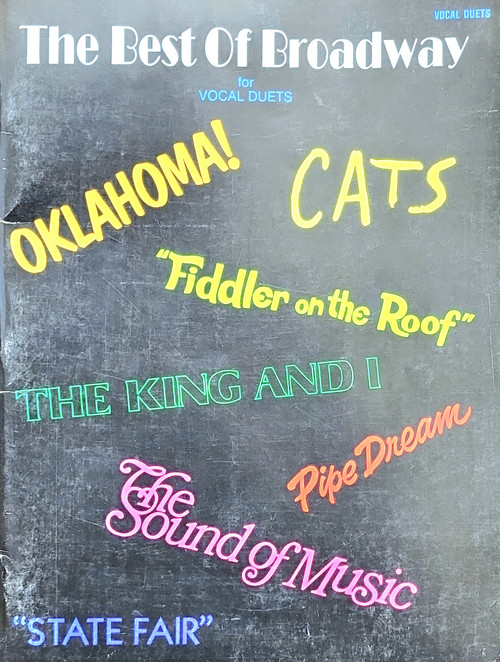 VOCAL DUETS
The Best Of Broadway
for
VOCAL DUETS
OKLAHOMA!
CATS
"Fiddler on the Roof"
THE KING AND I
Pipe Dream
The
Sound of Music
"STATE FAIR"